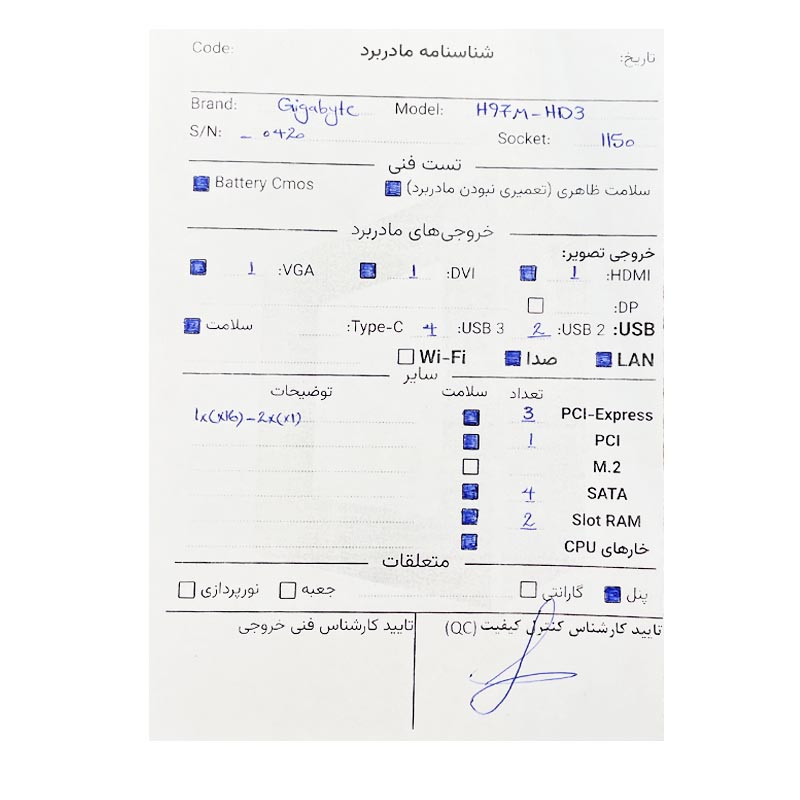 شناسنامه مادربرد
تاریخ: Code:
Brand: Gigabyte Model: H97M-HD3
S/N: - 0420 Socket: 1150
تست فنی
سلامت ظاهری (تعمیری نبودن مادربرد) Battery Cmos
خروجی‌های مادربرد
خروجی تصویر:
HDMI: 1 DVI: 1 VGA: 1
DP:
USB: USB 2: 2 USB 3: 4 Type-C: سلامت
LAN صدا Wi-Fi
سایر
تعداد سلامت توضیحات
PCI-Express 3 1x(x16)-2x(x1)
PCI 1
M.2
SATA 4
Slot RAM 2
خارهای CPU
متعلقات
پنل گارانتی جعبه نورپردازی
تایید کارشناس کنترل کیفیت (QC) تایید کارشناس فنی خروجی